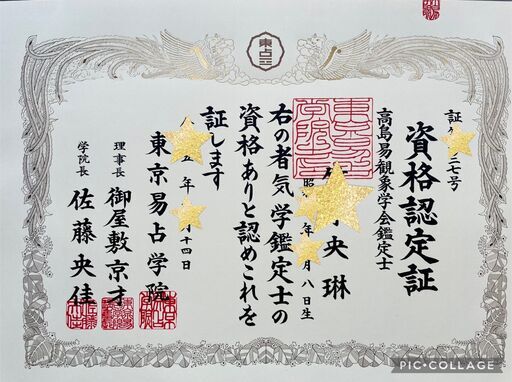 証 二七号
資格認定証
高島易観象学会鑑定士
央琳
昭 年 月八日生
右の者気学鑑定士の
資格ありと認めこれを
証します
五年 月十四日
東京易占学院
理事長 御屋敷京才
学院長 佐藤央佳
東占
PIC•COLLAGE